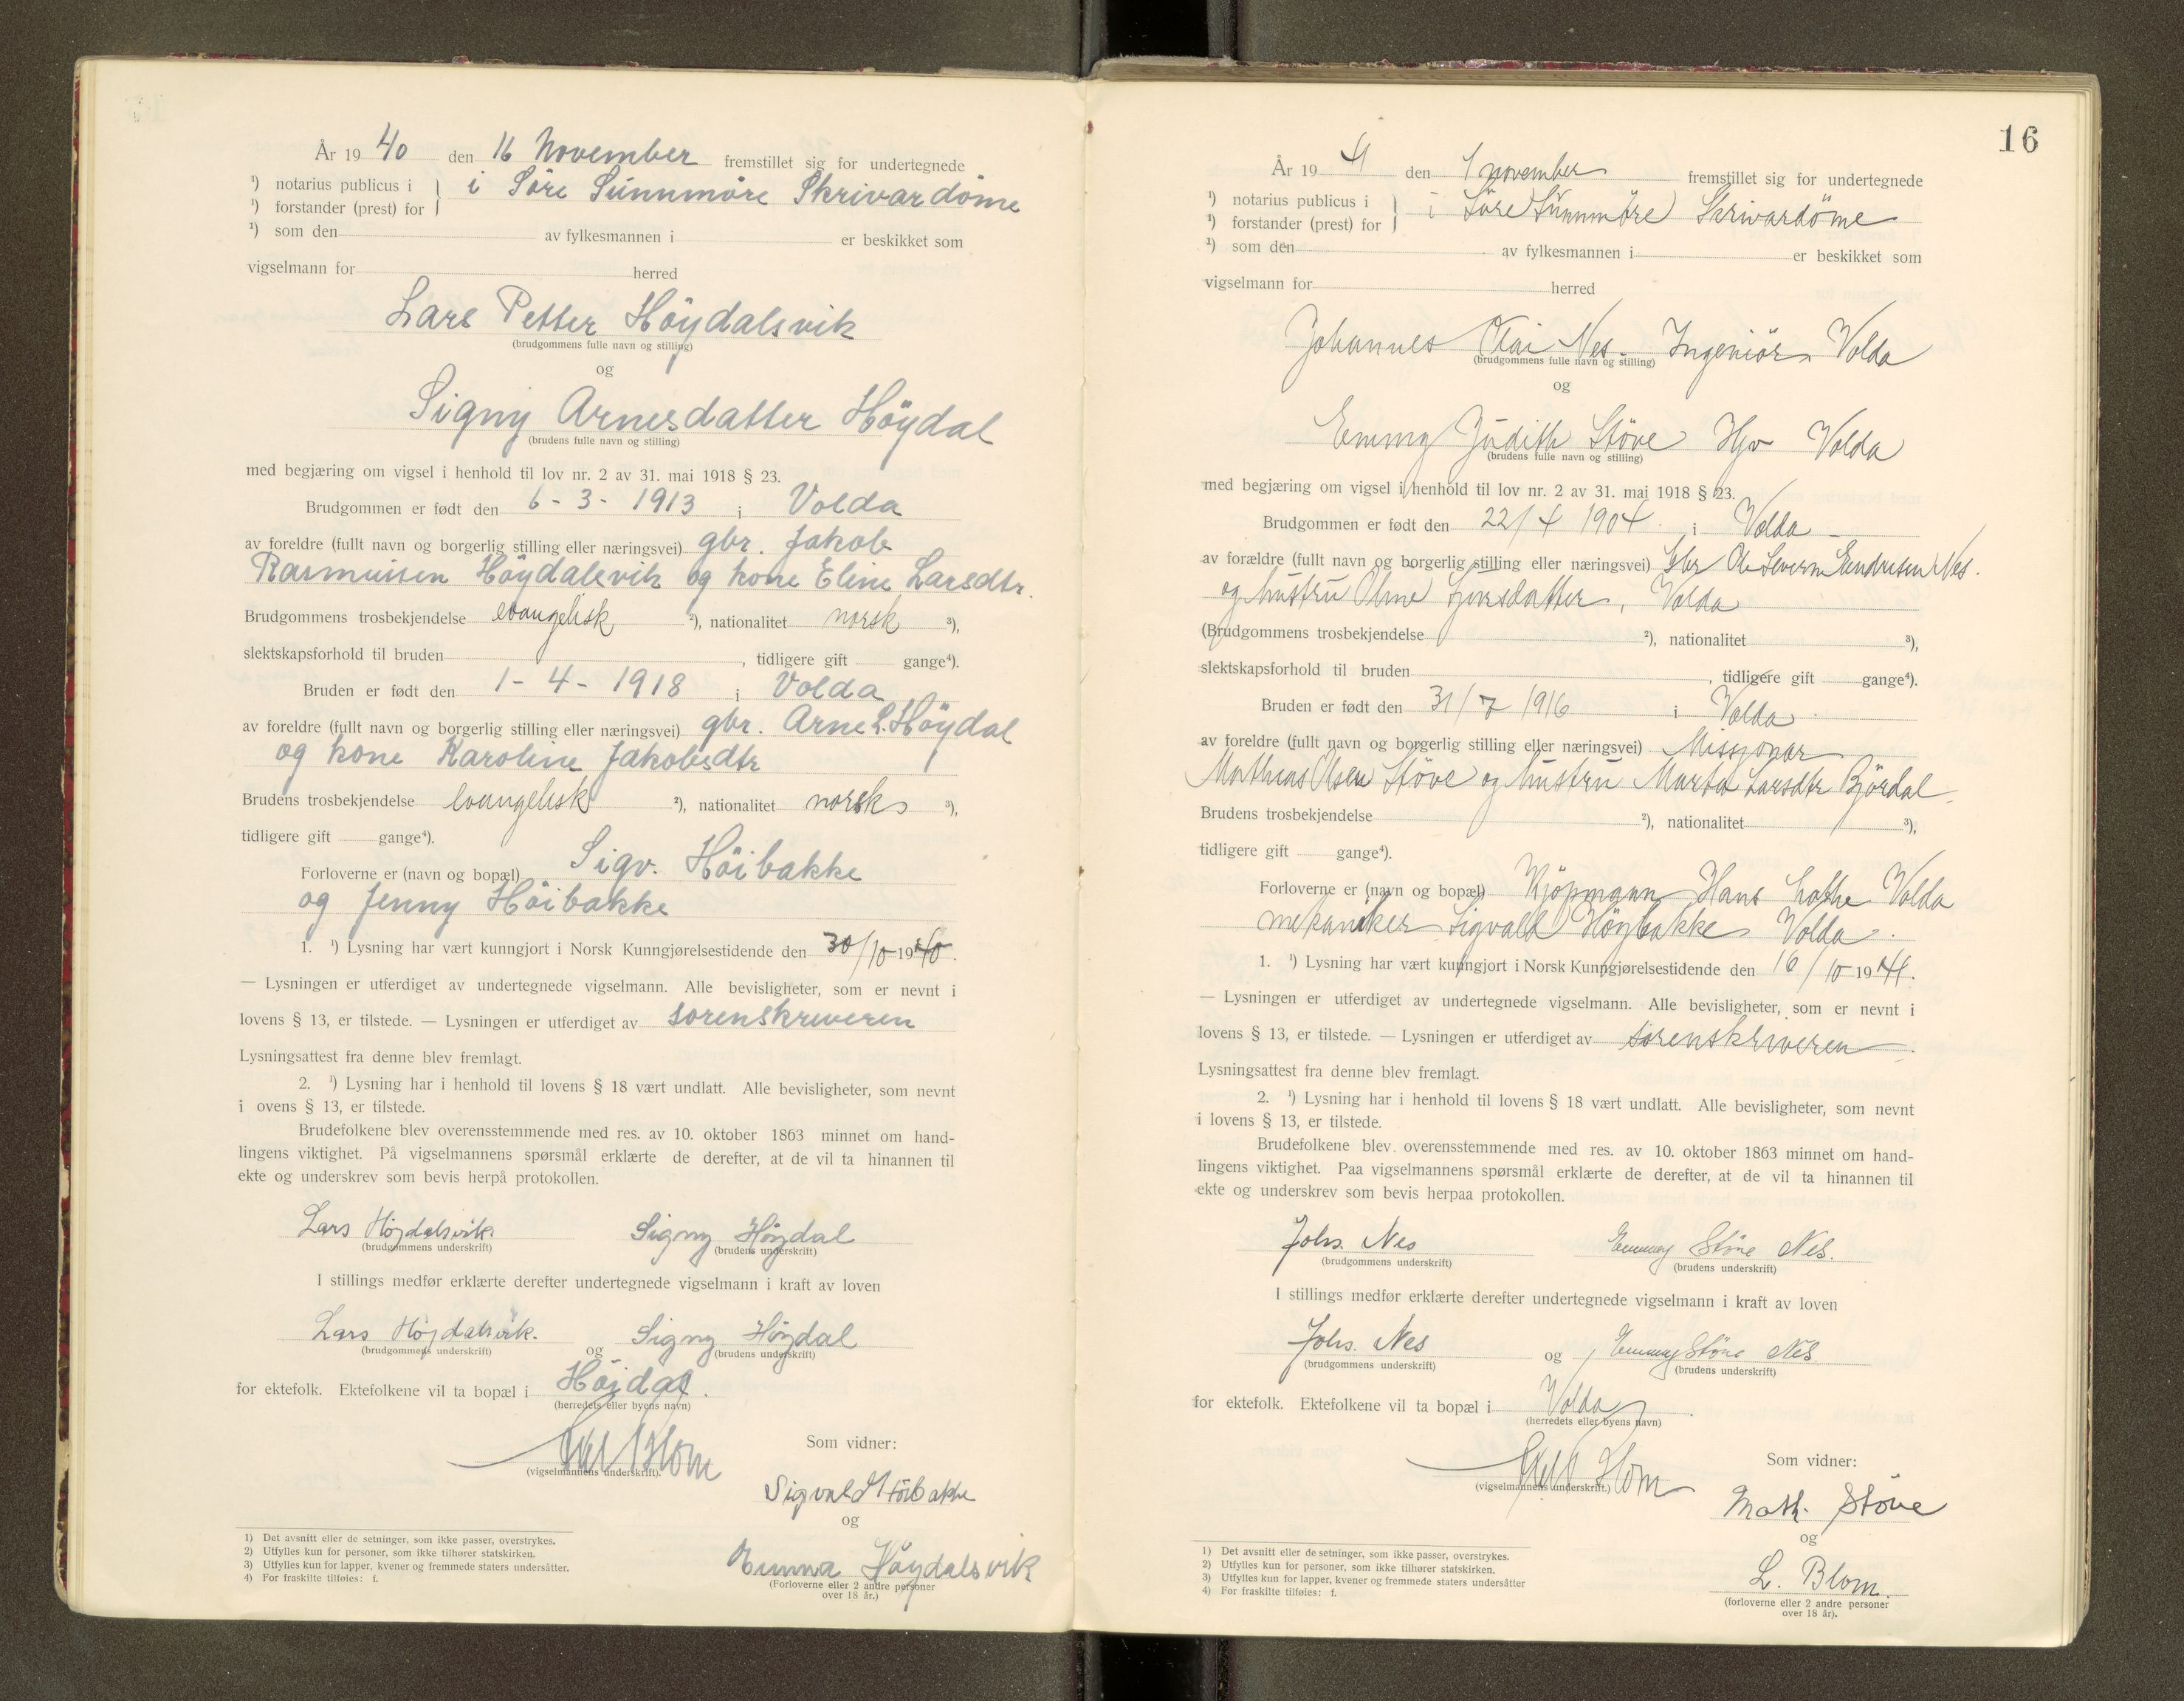 År 19 40 den 16 November fremstillet sig for undertegnede
¹) notarius publicus i } i Söre Sünnmöre Skrivardöme
¹) forstander (prest) for
¹) som den av fylkesmannen i er beskikket som
vigselmann for herred
Lars Petter Höydalsvik
(brudgommens fulle navn og stilling)
og
Signy Arnesdatter Höydal
(brudens fulle navn og stilling)
med begjæring om vigsel i henhold til lov nr. 2 av 31. mai 1918 § 23.
Brudgommen er født den 6 - 3 - 1913 i Volda
av foreldre (fullt navn og borgerlig stilling eller næringsvei) gbr. Jakob
Rasmussen Höydalsvik og kone Eline Larsdtr.
Brudgommens trosbekjendelse evangelisk ²), nationalitet norsk ³),
slektskapsforhold til bruden , tidligere gift gange⁴).
Bruden er født den 1 - 4 - 1918 i Volda
av foreldre (fullt navn og borgerlig stilling eller næringsvei) gbr. Arne L. Höydal
og kone Karoline Jakobsdtr
Brudens trosbekjendelse evangelisk ²), nationalitet norsk ³),
tidligere gift gange⁴).
Forloverne er (navn og bopæl) Sigv. Höibakke
og Jenny Höibakke
1. ¹) Lysning har vært kunngjort i Norsk Kunngjørelsestidende den 30/10 1940.
— Lysningen er utferdiget av undertegnede vigselmann. Alle bevisligheter, som er nevnt i
lovens § 13, er tilstede. — Lysningen er utferdiget av sorenskriveren
Lysningsattest fra denne blev fremlagt.
2. ¹) Lysning har i henhold til lovens § 18 vært undlatt. Alle bevisligheter, som nevnt
i ovens § 13, er tilstede.
Brudefolkene blev overensstemmende med res. av 10. oktober 1863 minnet om hand-
lingens viktighet. På vigselmannens spørsmål erklærte de derefter, at de vil ta hinannen til
ekte og underskrev som bevis herpå protokollen.
Lars Höydalsvik. Signy Höydal
(brudgommens underskrift) (brudens underskrift)
I stillings medfør erklærte derefter undertegnede vigselmann i kraft av loven
Lars Höydalsvik. og Signy Höydal
(brudgommens underskrift) (brudens underskrift)
for ektefolk. Ektefolkene vil ta bopæl i Höidal.
(herredets eller byens navn)
Blom
(vigselmannens underskrift).
Som vidner:
Sigvald Höibakke
og
Gunna Höydalsvik
(Forloverne eller 2 andre personer
over 18 år.)
1) Det avsnitt eller de setninger, som ikke passer, overstrykes.
2) Utfylles kun for personer, som ikke tilhører statskirken.
3) Utfylles kun for lapper, kvener og fremmede staters undersåtter.
4) For fraskilte tilføies: f.
16
År 19 41 den 1 november fremstillet sig for undertegnede
¹) notarius publicus i } i Söre Sünnmöre Skrivardöme
¹) forstander (prest) for
¹) som den av fylkesmannen i er beskikket som
vigselmann for herred
Johannes Olai Nes Ingeniör Volda
(brudgommens fulle navn og stilling)
og
Emmy Judith Stöve Hjv Volda
(brudens fulle navn og stilling)
med begjæring om vigsel i henhold til lov nr. 2 av 31. mai 1918 § 23.
Brudgommen er født den 22/4 1904. i Volda
av forældre (fullt navn og borgerlig stilling eller næringsvei) Gbr Ole Severin Endresen Nes.
og hustru Oline Datter, Volda
(Brudgommens trosbekjendelse ²), nationalitet ³),
slektskapsforhold til bruden , tidligere gift gange⁴).
Bruden er født den 31/7 1916 i Volda
av foreldre (fullt navn og borgerlig stilling eller næringsvei) Missjonær
Mathias Olsen Stöve og hustru Marta Larsdtr Björdal
Brudens trosbekjendelse ²), nationalitet ³),
tidligere gift gange⁴).
Forloverne er (navn og bopæl) Kjöpmann Hans Lothe Volda
mekaniker Sigvald Höybakke Volda.
1. ¹) Lysning har vært kunngjort i Norsk Kunngjørelsestidende den 16/10 1941.
— Lysningen er utferdiget av undertegnede vigselmann. Alle bevisligheter, som er nevnt i
lovens § 13, er tilstede. — Lysningen er utferdiget av sorenskriveren
Lysningsattest fra denne blev fremlagt.
2. ¹) Lysning har i henhold til lovens § 18 vært undlatt. Alle bevisligheter, som nevnt
i lovens § 13, er tilstede.
Brudefolkene blev overensstemmende med res. av 10. oktober 1863 minnet om hand-
lingens viktighet. Paa vigselmannens spørsmål erklærte de derefter, at de vil ta hinannen til
ekte og underskrev som bevis herpaa protokollen.
Johs. Nes Emmy Stöve Nes.
(brudgommens underskrift) (brudens underskrift)
I stillings medfør erklærte derefter undertegnede vigselmann i kraft av loven
Johs. Nes og Emmy Stöve Nes
(brudgommens underskrift) (brudens underskrift)
for ektefolk. Ektefolkene vil ta bopæl i Volda
(herredets eller byens navn)
Blom
(vigselmannens underskrift.)
Som vidner:
Math. Stöve
og
L. Blom.
(forloverne eller 2 andre personer
over 18 år).
1) Det avsnitt eller de setninger, som ikke passer, overstrykes.
2) Utfylles kun for personer, som ikke tilhører statskirken.
3) Utfylles kun for lapper, kvener og fremmede staters undersåtter
4) For fraskilte tilføies: f.